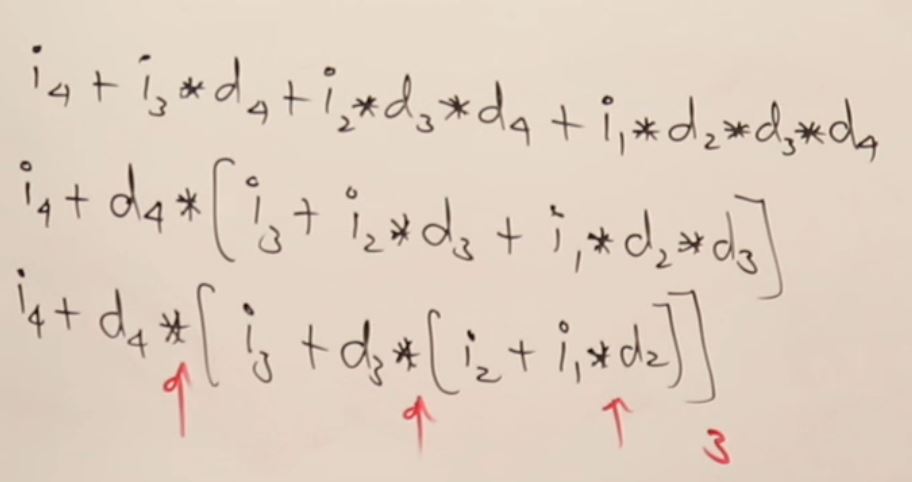 i₄ + i₃ * d₄ + i₂ * d₃ * d₄ + i₁ * d₂ * d₃ * d₄
i₄ + d₄ * [i₃ + i₂ * d₃ + i₁ * d₂ * d₃]
i₄ + d₄ * [i₃ + d₃ * [i₂ + i₁ * d₂]]
↑ ↑ ↑ 3